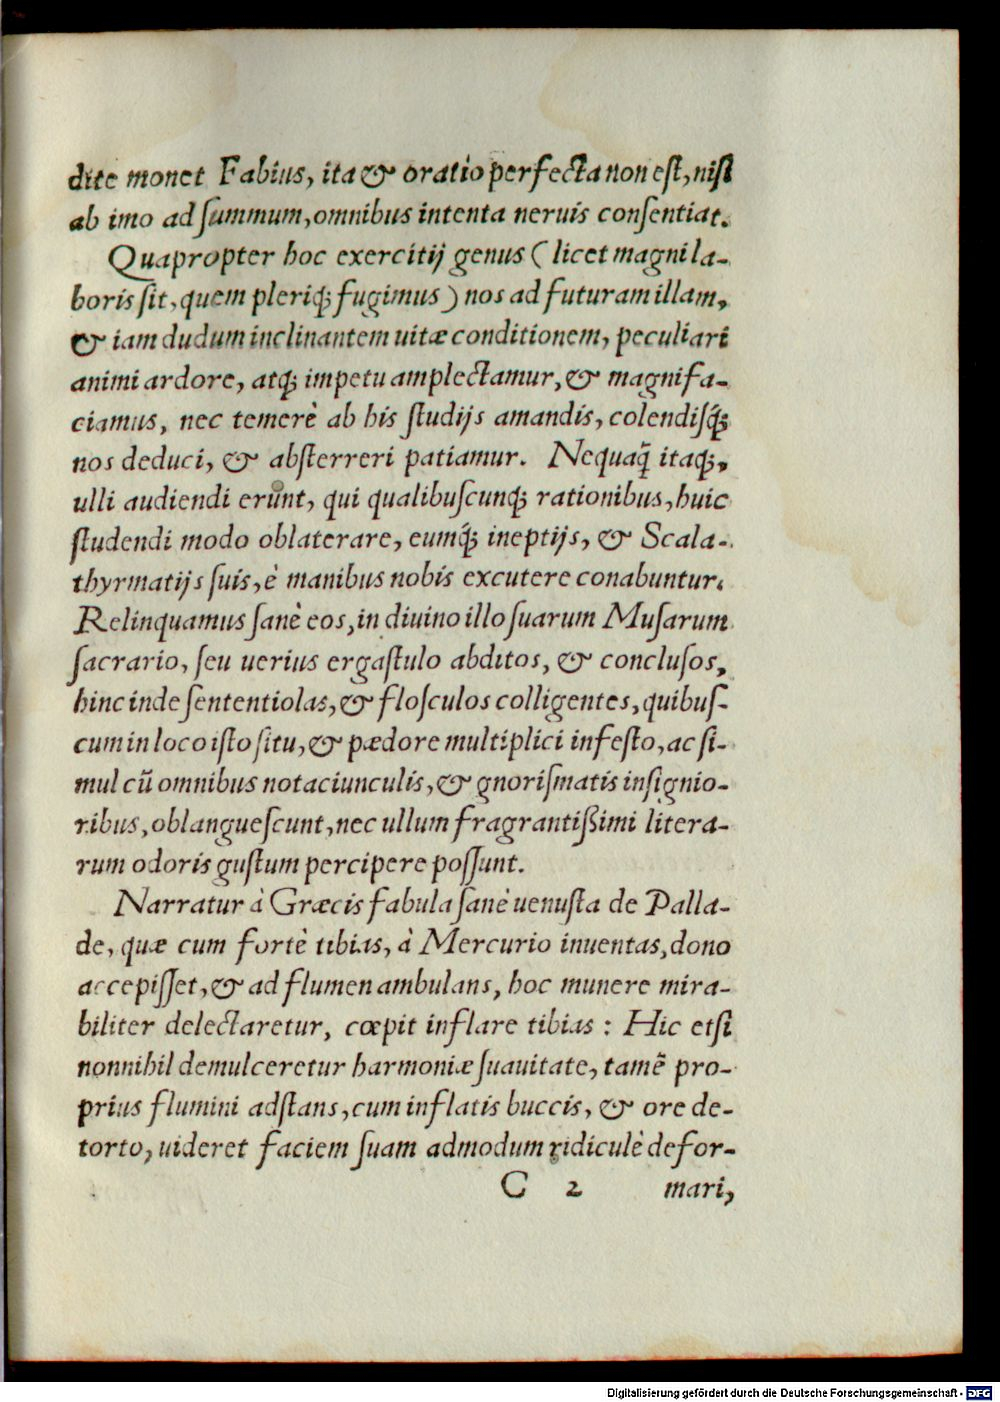 dite monet Fabius, ita & oratio perfecta non est, nisi
ab imo ad summum, omnibus intenta neruis consentiat.
Quapropter hoc exercitij genus (licet magni la-
boris sit, quem pleriq́; fugimus) nos ad futuram illam,
& iam dudum inclinantem uitæ conditionem, peculiari
animi ardore, atq́; impetu amplectamur, & magnifa-
ciamus, nec temerè ab his studijs amandis, colendisq́;
nos deduci, & absterreri patiamur. Nequaq̃ itaq́;,
ulli audiendi erunt, qui qualibuscunq́; rationibus, huic
studendi modo oblaterare, eumq́; ineptijs, & Scala-
thyrmatijs suis, è manibus nobis excutere conabuntur.
Relinquamus sanè eos, in diuino illo suarum Musarum
sacrario, seu uerius ergastulo abditos, & conclusos,
hinc inde sententiolas, & flosculos colligentes, quibus-
cum in loco isto situ, & pædore multiplici infesto, ac si-
mul cũ omnibus notaciunculis, & gnorismatis insignio-
ribus, oblanguescunt, nec ullum fragrantißimi litera-
rum odoris gustum percipere possunt.
Narratur à Græcis fabula sanè uenusta de Palla-
de, quæ cum fortè tibias, à Mercurio inuentas, dono
accepisset, & ad flumen ambulans, hoc munere mira-
biliter delectaretur, cœpit inflare tibias : Hic etsi
nonnihil demulceretur harmoniæ suauitate, tamẽ pro-
prius flumini adstans, cum inflatis buccis, & ore de-
torto, uideret faciem suam admodum ridiculè defor-
C 2 mari,
Digitalisierung gefördert durch die Deutsche Forschungsgemeinschaft - DFG